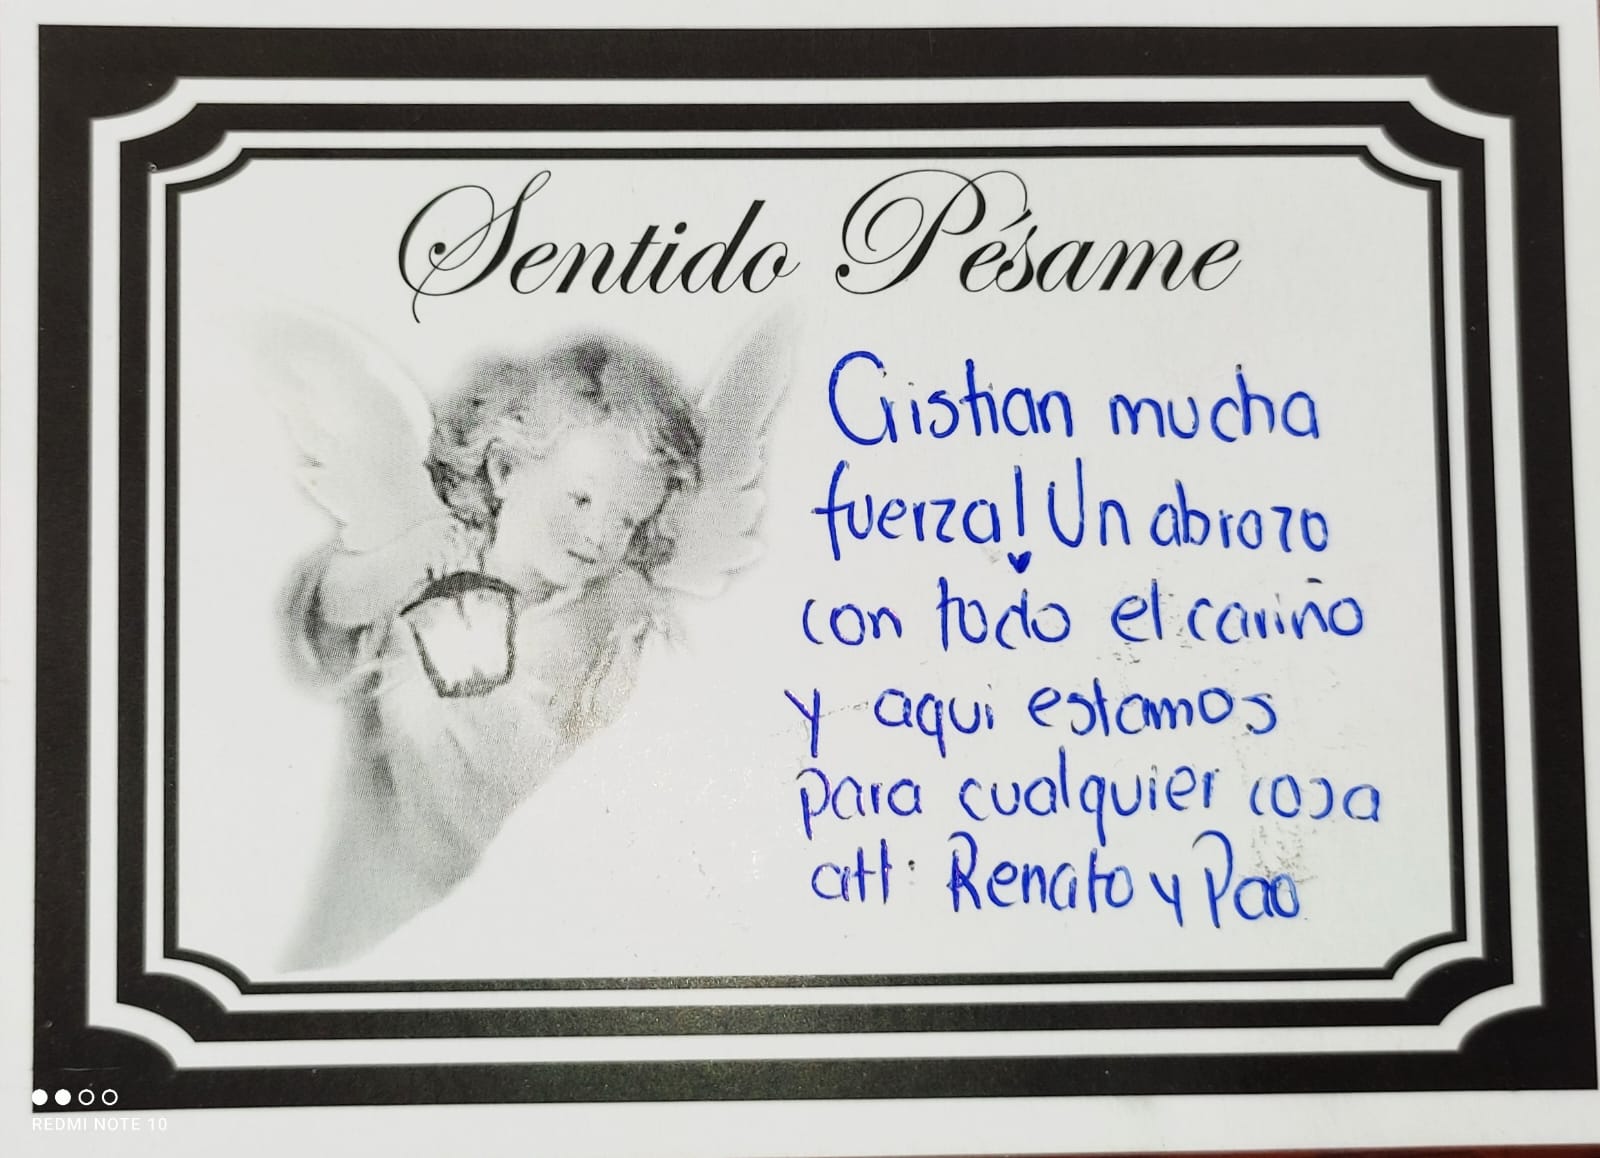 Sentido Pésame
Cristian mucha
fuerza! Un abrazo
con todo el cariño
y aqui estamos
para cualquier cosa
att: Renato y Pao
REDMI NOTE 10